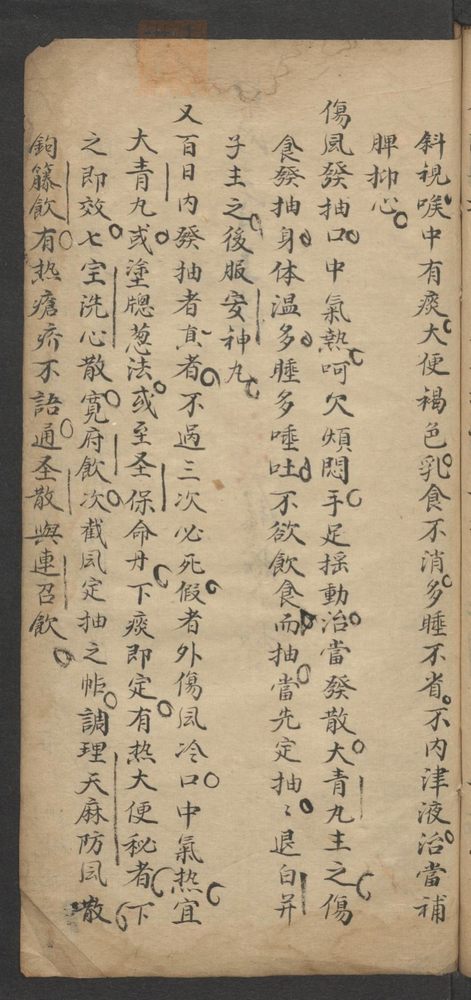 斜視喉中有痰大便褐色乳食不消多睡不省不內津液治當補
脾抑心
傷風發抽口中氣熱呵欠煩悶手足搖動治當發散大青九主之傷
食發抽身体温多睡多唾吐不欲飲食而抽當先定抽〻退白并
子主之後服安神九
又百日內發抽者真者不過三次必死假者外傷風冷口中氣熱宜
大青九或塗牕葱法或至圣保命丹下痰即定有热大便秘者下
之即效七宝洗心散寛府飲次截風定抽之帖調理天麻防風散
鈎籐飲有热瘡疥不語通圣散與連召飲